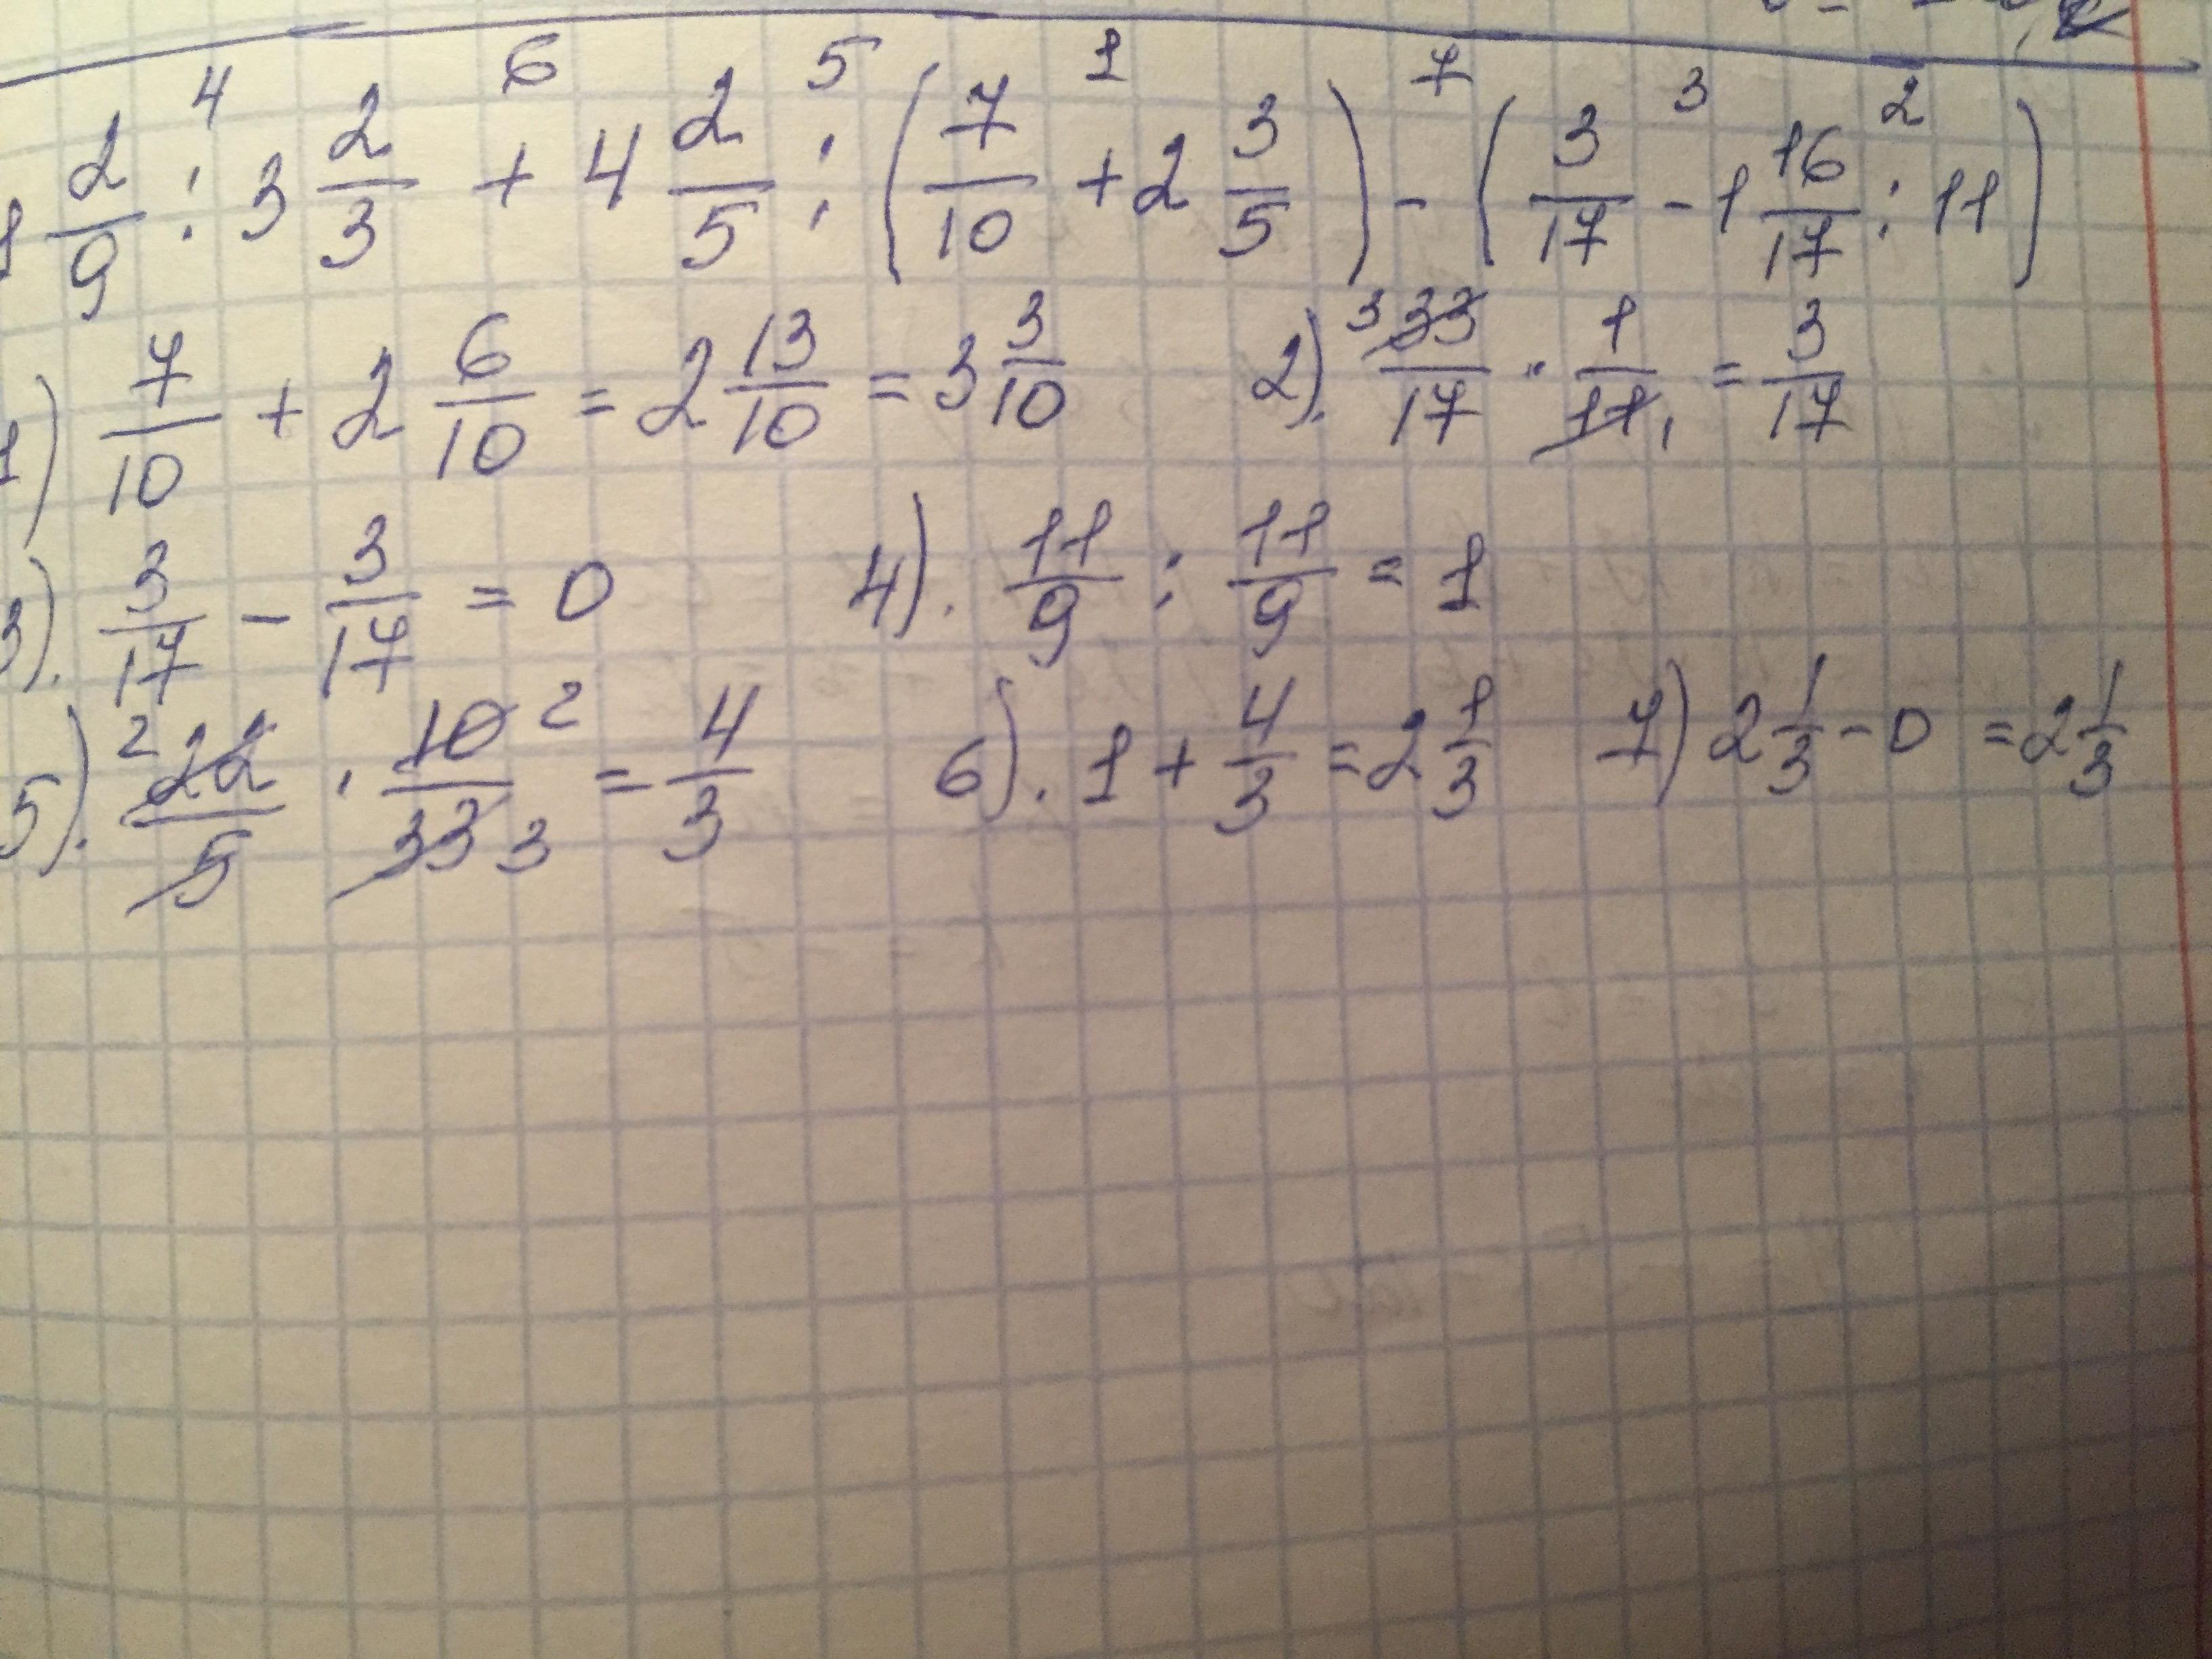 1 2/9 : 3 2/3 + 4 2/5 : (7/10 + 2 3/5) - (3/17 - 1 16/17 : 11)
4 6 5 1 7 3 2
1) 7/10 + 2 6/10 = 2 13/10 = 3 3/10 2). 33/17 · 1/11 = 3/17
3 1
3). 3/17 - 3/17 = 0 4). 11/9 : 11/9 = 1
5). 22/5 · 10/33 = 4/3 6). 1 + 4/3 = 2 1/3 7) 2 1/3 - 0 = 2 1/3
2 2 3